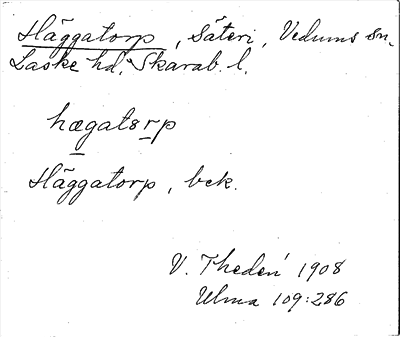 Häggatorp, Säteri, Vedums sn.
Laske hd. Skarab. l.
hægatsrp
Häggatorp, bek.
V. Thedén 1908
Ulma 109:286